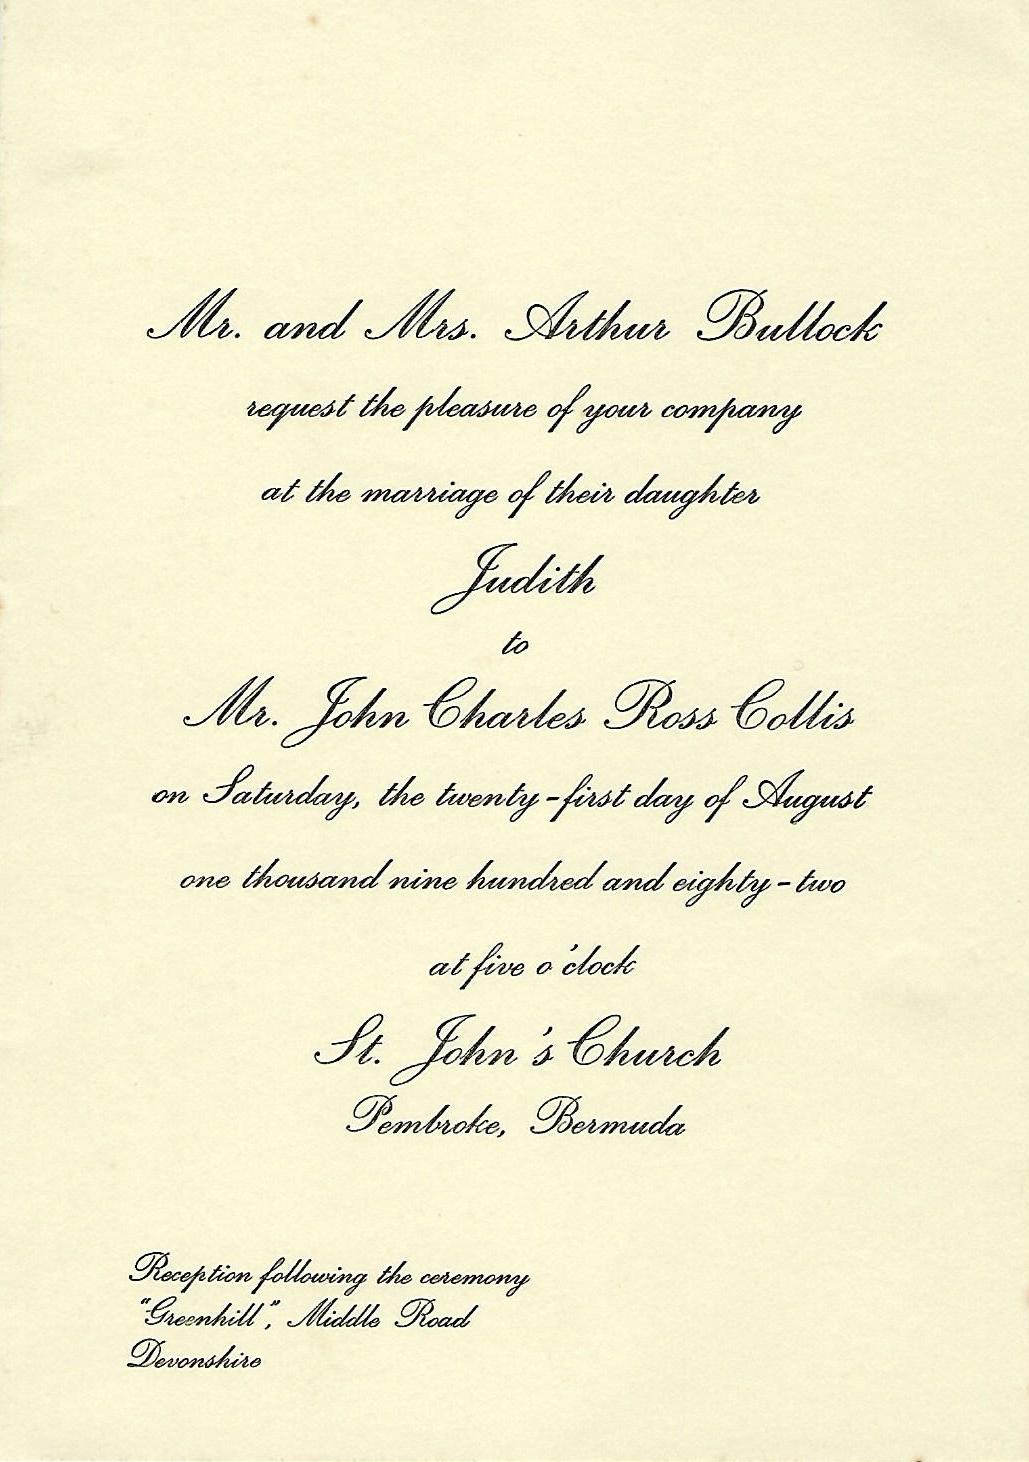 Mr. and Mrs. Arthur Bullock
request the pleasure of your company
at the marriage of their daughter
Judith
to
Mr. John Charles Ross Collis
on Saturday, the twenty-first day of August
one thousand nine hundred and eighty-two
at five o'clock
St. John's Church
Pembroke, Bermuda
Reception following the ceremony
"Greenhill", Middle Road
Devonshire